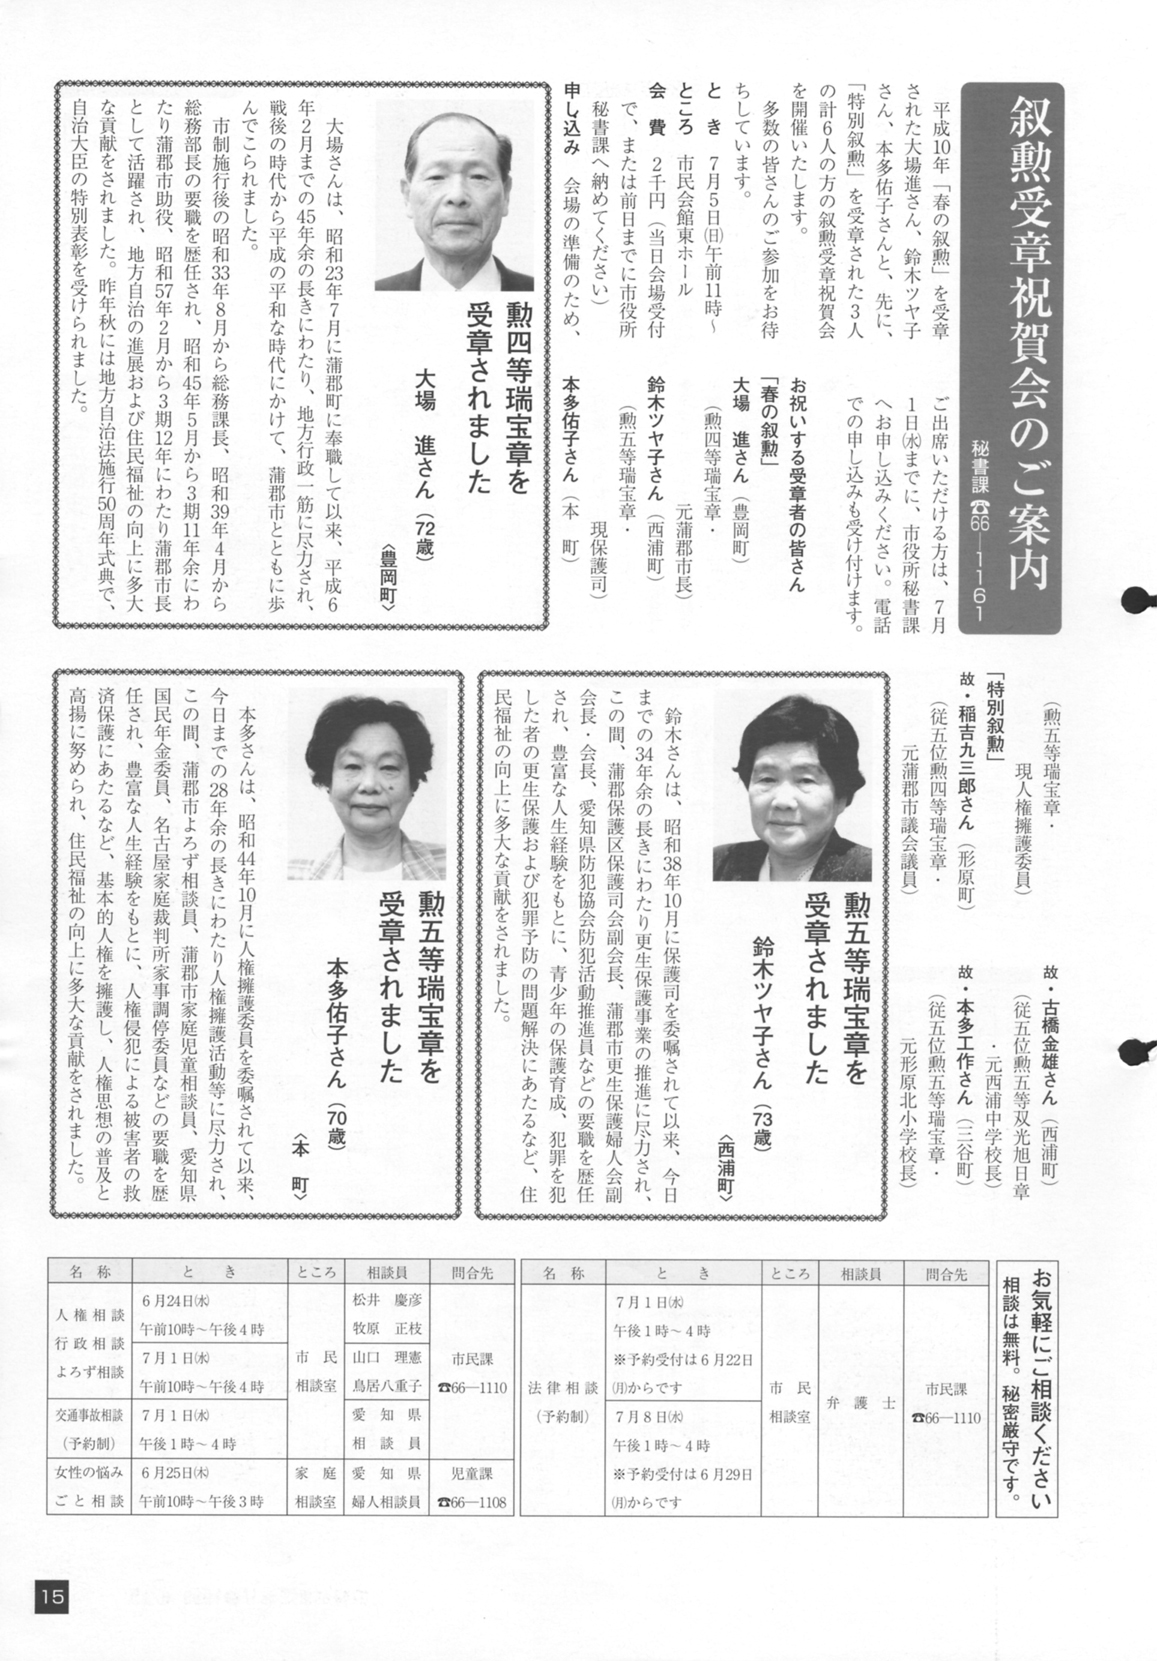 叙勲受章祝賀会のご案内
秘書課☎66―1161
平成10年「春の叙勲」を受章
された大場進さん、鈴木ツヤ子
さん、本多佑子さんと、先に、
「特別叙勲」を受章された3人
の計6人の方の叙勲受章祝賀会
を開催いたします。
多数の皆さんのご参加をお待
ちしています。
と　き　7月5日㈰午前11時～
ところ　市民会館東ホール
会　費　2千円（当日会場受付
で、または前日までに市役所
秘書課へ納めてください）
申し込み　会場の準備のため、
ご出席いただける方は、7月
1日㈬までに、市役所秘書課
へお申し込みください。電話
での申し込みも受け付けます。
お祝いする受章者の皆さん
「春の叙勲」
大場　進さん（豊岡町）
（勲四等瑞宝章・
元蒲郡市長）
鈴木ツヤ子さん（西浦町）
（勲五等瑞宝章・
現保護司）
本多佑子さん（本　町）
（勲五等瑞宝章・
現人権擁護委員）
「特別叙勲」
故・稲吉九三郎さん（形原町）
（従五位勲四等瑞宝章・
元蒲郡市議会議員）
故・古橋金雄さん（西浦町）
（従五位勲五等双光旭日章
・元西浦中学校長）
故・本多工作さん（三谷町）
（従五位勲五等瑞宝章・
元形原北小学校長）
勲四等瑞宝章を
受章されました
大場　進さん（72歳）
〈豊岡町〉
大場さんは、昭和23年7月に蒲郡町に奉職して以来、平成6
年2月までの45年余の長きにわたり、地方行政一筋に尽力され、
戦後の時代から平成の平和な時代にかけて、蒲郡市とともに歩
んでこられました。
市制施行後の昭和33年8月から総務課長、昭和39年4月から
総務部長の要職を歴任され、昭和45年5月から3期11年余にわ
たり蒲郡市助役、昭和57年2月から3期12年にわたり蒲郡市長
として活躍され、地方自治の進展および住民福祉の向上に多大
な貢献をされました。昨年秋には地方自治法施行50周年式典で、
自治大臣の特別表彰を受けられました。
勲五等瑞宝章を
受章されました
鈴木ツヤ子さん（73歳）
〈西浦町〉
鈴木さんは、昭和38年10月に保護司を委嘱されて以来、今日
までの34年余の長きにわたり更生保護事業の推進に尽力され、
この間、蒲郡保護区保護司会副会長、蒲郡市更生保護婦人会副
会長・会長、愛知県防犯協会防犯活動推進員などの要職を歴任
され、豊富な人生経験をもとに、青少年の保護育成、犯罪を犯
した者の更生保護および犯罪予防の問題解決にあたるなど、住
民福祉の向上に多大な貢献をされました。
勲五等瑞宝章を
受章されました
本多佑子さん（70歳）
〈本　町〉
本多さんは、昭和44年10月に人権擁護委員を委嘱されて以来、
今日までの28年余の長きにわたり人権擁護活動等に尽力され、
この間、蒲郡市よろず相談員、蒲郡市家庭児童相談員、愛知県
国民年金委員、名古屋家庭裁判所家事調停委員などの要職を歴
任され、豊富な人生経験をもとに、人権侵犯による被害者の救
済保護にあたるなど、基本的人権を擁護し、人権思想の普及と
高揚に努められ、住民福祉の向上に多大な貢献をされました。
お気軽にご相談ください
相談は無料。秘密厳守です。
名　称　と　き　ところ　相談員　問合先
法律相談
（予約制）
7月1日㈬
午後1時～4時
※予約受付は6月22日
㈪からです
7月8日㈬
午後1時～4時
※予約受付は6月29日
㈪からです
市　民
相談室
弁　護　士
市民課
☎66―1110
名　称　と　き　ところ　相談員　問合先
人権相談
行政相談
よろず相談
6月24日㈬
午前10時～午後4時
7月1日㈬
午前10時～午後4時
市　民
相談室
松井　慶彦
牧原　正枝
山口　理憲
鳥居八重子
市民課
☎66―1110
交通事故相談
（予約制）
7月1日㈬
午後1時～4時
愛　知　県
相　談　員
女性の悩み
ごと相談
6月25日㈭
午前10時～午後3時
家　庭
相談室
愛　知　県
婦人相談員
児童課
☎66―1108
15